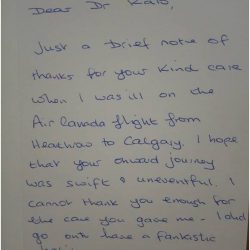 Dear Dr Kalo,
Just a brief note of
thanks for your kind care
when I was ill on the
Air Canada flight from
Heathrow to Calgary. I hope
that your onward journey
was swift & uneventful. I
cannot thank you enough for
the care you gave me - I did
go on to have a fantastic